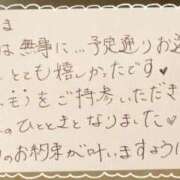 ま
は無事に…予定通りお逢
とても嬉しかったです♥
をご持参いただき
ひとときとなりました♥
のお約束が叶いますように